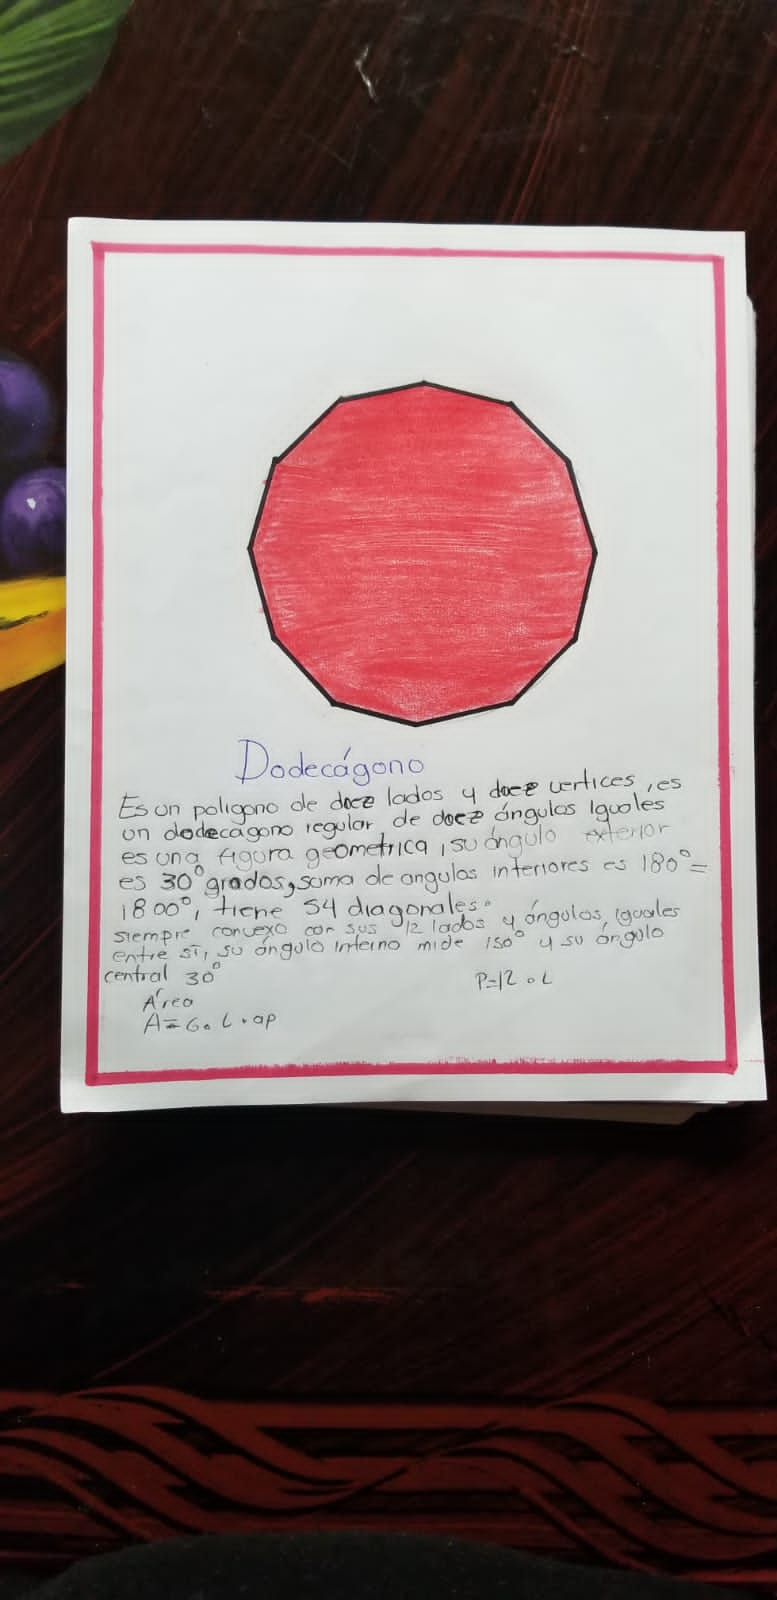 Dodecágono
Es un poligono de doce lados y doce vertices, es
un dodecágono regular de doce ángulos Iguales
es una figura geometrica, su ángulo exterior
es 30° grados, suma de angulos interiores es 180° =
1800°, tiene 54 diagonales.
siempre convexo con sus 12 lados y ángulos, iguales
entre sí, su ángulo interno mide 150° y su ángulo
central 30°
P=12 . L
Área
A = 6. L . ap